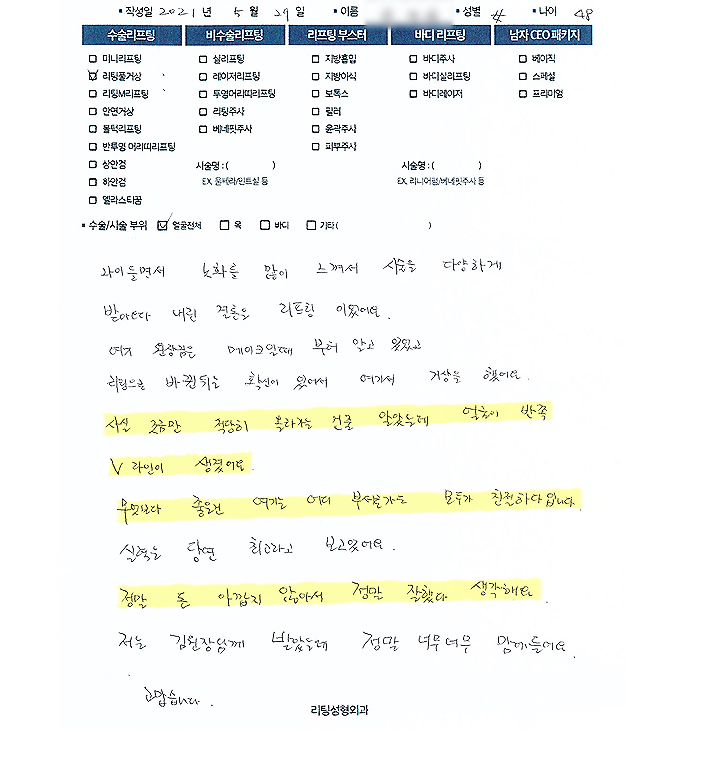 • 작성일 2021 년 5 월 29 일 • 이름 • 성별 • 나이 48
수술리프팅 비수술리프팅 리프팅 부스터 바디 리프팅 남자 CEO 패키지
미니리프팅 실리프팅 지방흡입 바디주사 베이직
리팅풀거상 레이저리프팅 지방이식 바디실리프팅 스페셜
리팅M리프팅 투명머리띠리프팅 보톡스 바디레이저 프리미엄
안면거상 리팅주사 필러
풀턱리프팅 베네핏주사 윤곽주사
반투명 머리띠리프팅 피부주사
상안검 시술명 : ( ) 시술명 : ( )
하안검 EX. 울쎄라/민트실 등 EX. 리니어펌/베네핏주사 등
엘라스티꿈
• 수술/시술 부위 얼굴전체 목 바디 기타 ( )
나이들면서 노화를 많이 느껴서 시술을 다양하게
받아보다 내린 결론은 리프팅 이었어요.
여기 원장님은 메이크일때 부터 알고 있었고
리팅으로 바뀐뒤는 확신이 있어서 여기서 거상을 했어요.
사실 조금만 적당히 올라가는 건줄 알았는데 얼굴이 반쪽
V 라인이 생겼어요.
무엇보다 좋은건 여기는 어디 부서를가도 모두가 친절하다입니다.
실력은 당연 최고라고 보고있어요.
정말 돈 아깝지 않아서 정말 잘했다 생각해요.
저는 김원장님께 받았는데 정말 너무너무 맘에들어요.
고맙습니다.
리팅성형외과